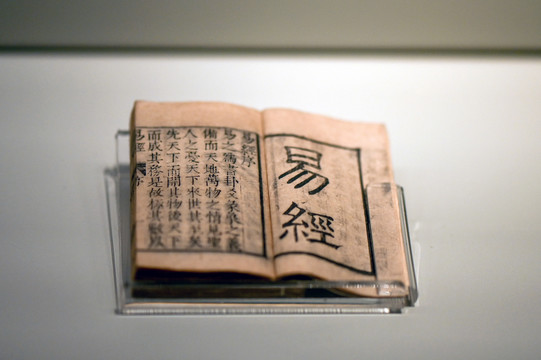 易經
易經序
易之為書卦爻彖象之義
備而天地萬物之情見聖
人之憂天下來世其至矣
先天下而開其物後天下
而成其務是故極其數以
易經 序